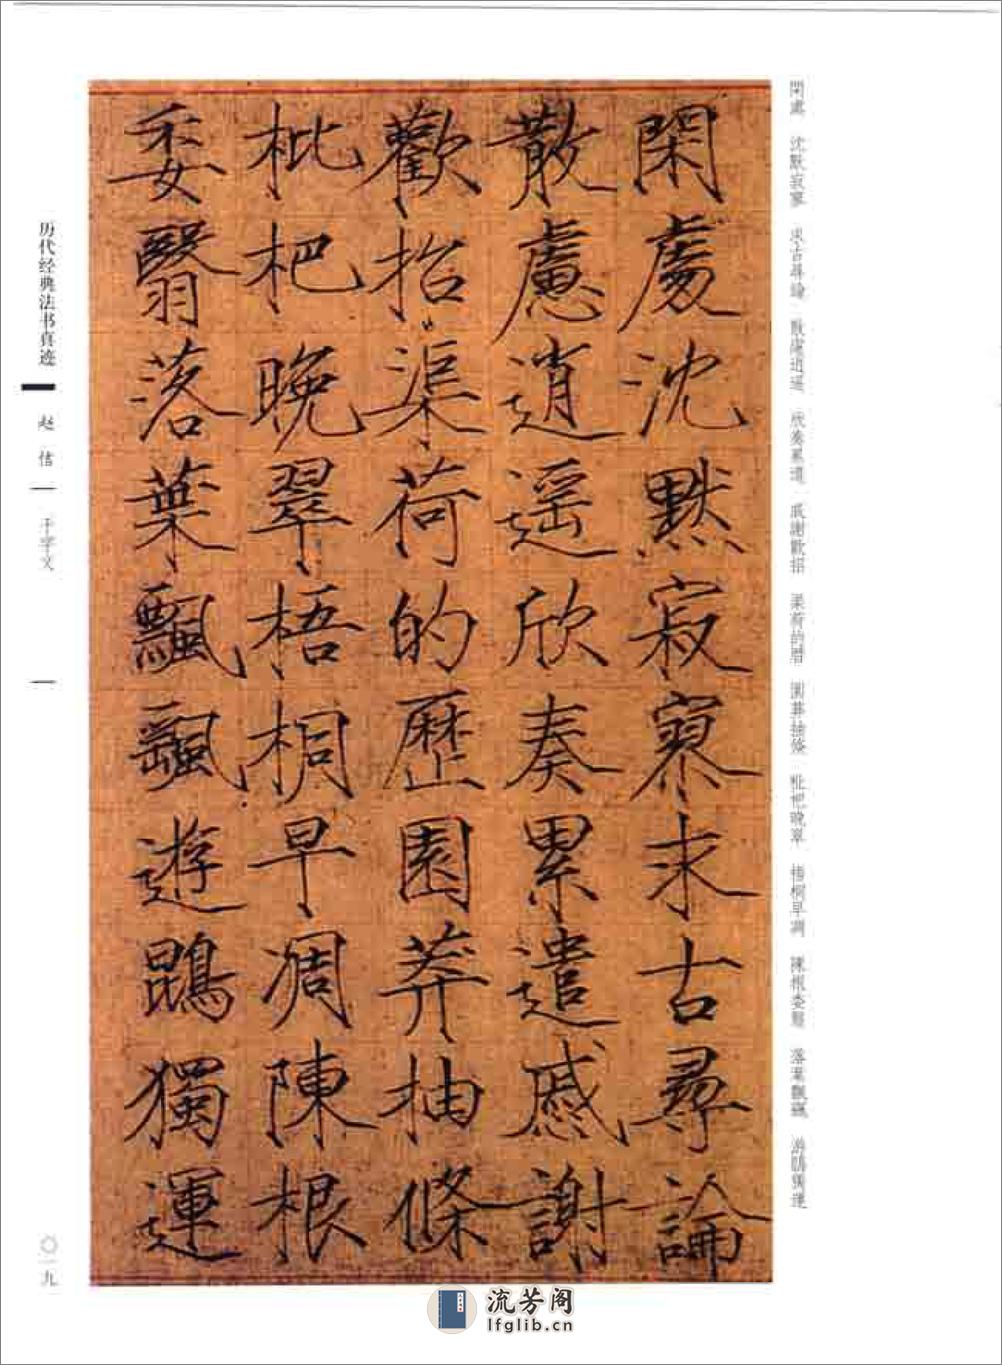 閑處　沈默寂寥　求古尋論　散慮逍遥　欣奏累遣　慼謝歡招　渠荷的歷　園莽抽條　枇杷晚翠　梧桐早凋　陳根委翳　落葉飄颻　游鵾獨運
閑處沈默寂寥求古尋論
散慮逍遥欣奏累遣慼謝
歡招渠荷的歷園莽抽條
枇杷晚翠梧桐早凋陳根
委翳落葉飄颻遊鵾獨運
历代经典法书真迹
赵佶
千字文
〇一九
流芳阁
lfglib.cn